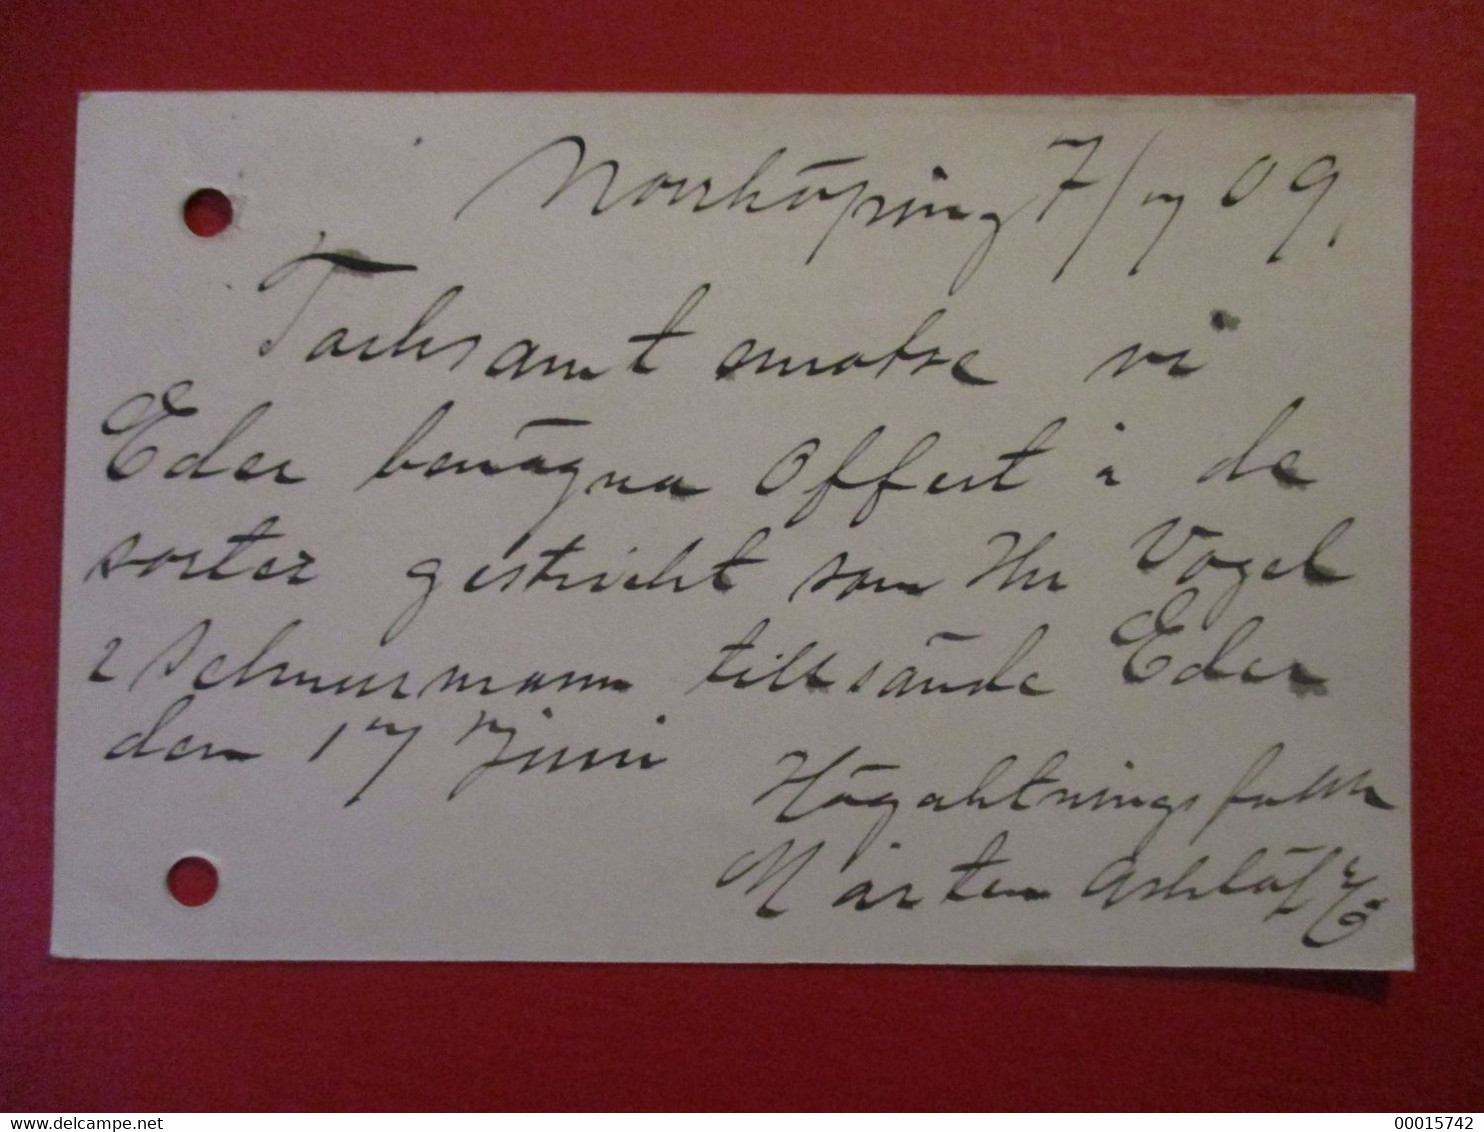 Norrköping 7/7 09.
Tacksamt emotse vi
Eder benägna Offert i de
sorter gestricht som Hrr Vogel
& Schnurmann tillsände Eder
den 17 Juni
Högaktningsfullt
Mårten
www.delcampe.net
tantejuju
00015742